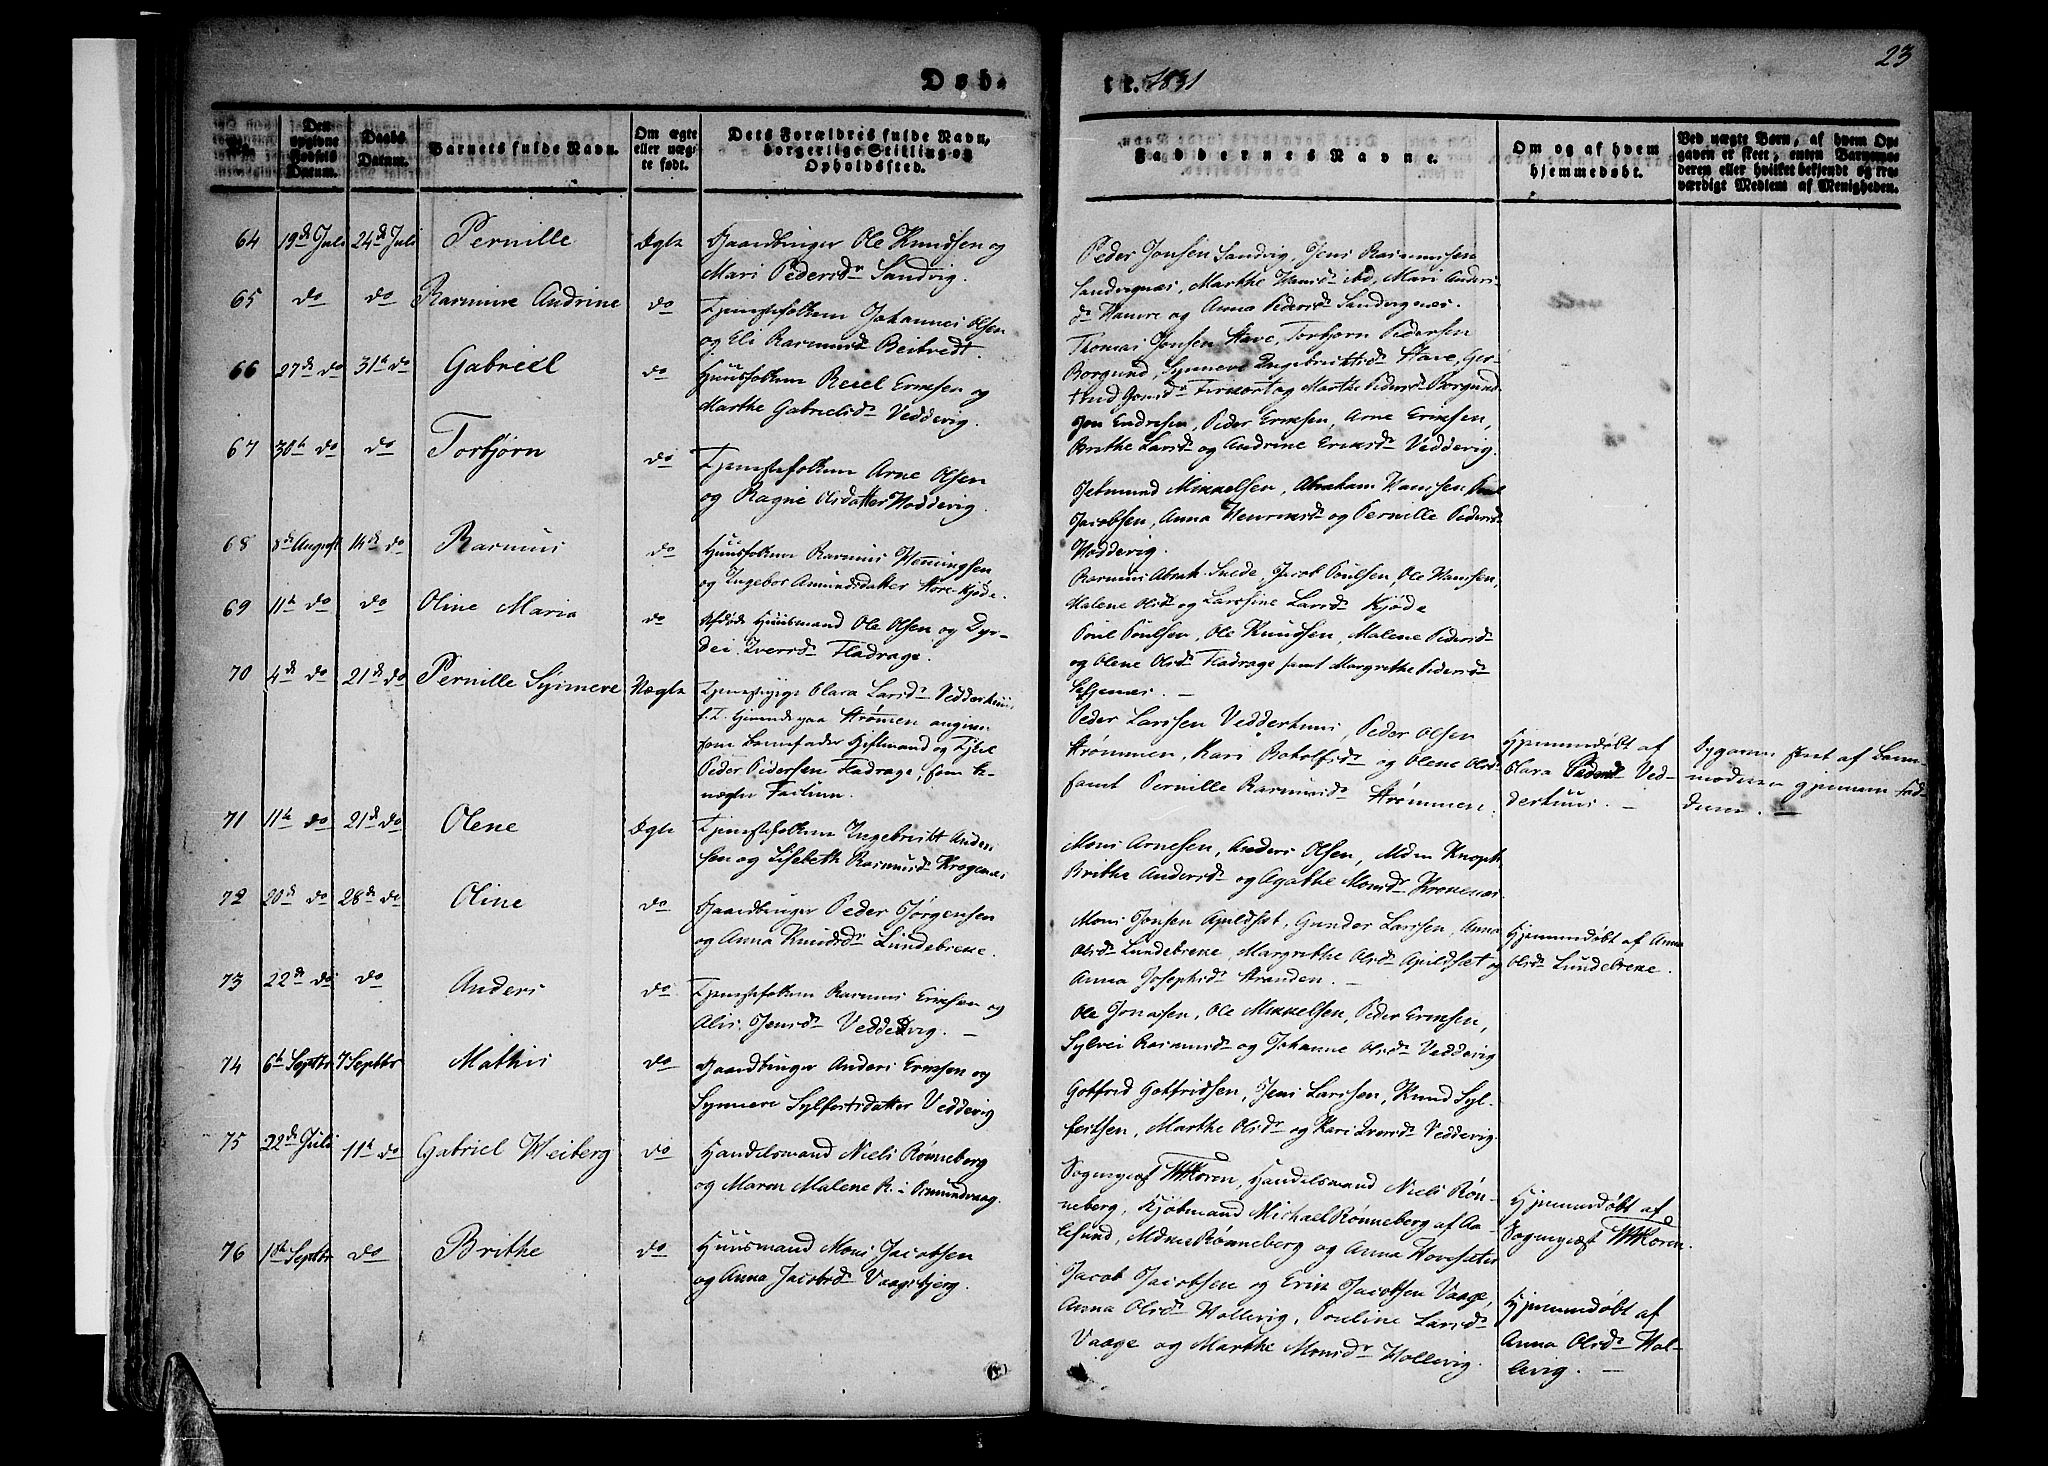 23
Døb-
te. 1831
No.
Den opgivne Fødsels Datum.
Daabs Datum.
Barnets fulde Navn.
Om ægte eller uægte født.
Dets Forældres fulde Navn, borgerlige Stilling og Opholdssted.
Faddernes Navne.
Om og af hvem hjemmedøbt.
Ved uægte Børn, af hvem Opgaven er skeet, enten Barnemoderen eller hvilket bekjendt og troværdigt Medlem af Menigheden.
64 19de Juli 24de Juli Pernille Ægte Gaardbruger Ole Knudsen og
Mari Pedersdr Sandvig.
Peder Jonsen Sandvig, Jens Rasmussen
Sandvignæs, Marthe Hansdr ibd, Mari Anders-
dr Hamre og Anna Pedersdr Sandvignæs.
65 do do Rasmine Andrine do Tjenestefolkene Johannes Olsen
og Eli Rasmusdr
Thomas Jonsen Have, Torbjørn Pedersen
Borgund, Synneve Ingebrigtsdr Have, Ger-
trud Jonsdr og Marthe Pedersdr Borgund
66 27de do 31te do Gabriel do Huusfolkene Resel Ericksen og
Marthe Gabrielsdr Veddevig.
Jon Endresen, Peder Ericksen, Arne Ericksen,
Brithe Larsdr og Andrine Ericksdr Veddevig.
67 30te do do Torbjørn do Tjenestefolkene Arne Olsen
og Ragne Olsdatter Hoddevig.
Jetmund Mikkelsen, Abraham Hansen Poul
Jacobsen, Anna Henriksdr og Pernille Pedersdr
Hoddevig.
68 8de August 14de do Rasmus do Huusfolkene Rasmus Hemingsen
og Ingebor Amundsdatter Store-Kjøde.
Rasmus Abrah. Silde, Jacob Poulsen, Ole Hansen,
Malene Olsdr og Larssine Larsdr Kjøde
69 11te do do Oline Maria do Afdøde Huusmand Ole Olsen og Dyr-
dei Iversdr Fladrage.
Poul Poulsen, Ole Knudsen, Malene Pedersdr
og Olene Olsdr Fladrage samt Margrethe Pedersdr
70 4de do 21de do Pernille Synneve Uægte Tjenestepige Olava Larsdr Vedderhuus
f. T. tjenende paa Strømmen angiven
som Barnefader Giftmand og
Peder Pedersen Fladrage, som be-
nægter Factum.
Peder Larssen Vedderhuus, Peder Olsen
Strømmen, Kari Botolfsdr og Olene Olsdr
samt Pernille Rasmusdr Strømmen.
Hjemmedøbt af
Olara Pedersdr Ved-
derhuus. —
Opgaven skeet af Barne-
moderen gjennem Fad-
derne. —
71 11te do 21de do Olene Ægte Tjenestefolkene Ingebrikt Anders
sen og Lisbeth Rasmusdr Krogenæs
Mons Arnesen, Anders Olsen, Mdm Knoph
Brithe Andersdr og Agathe Monsdr Krokenæs.
72 20de do 28de do Oline do Gaardbruger Peder Jørgensen
og Anna Knudsdr Lundebrekke.
Mons Jonsen Apuldset, Gunder Larssen, Anna
Olsdr Lundebrekke, Margrethe Olsdr Apuldset og
Anna Josephsdr Stranden. —
Hjemmedøbt af Anna
Olsdr Lundebrekke.
73 22de do do Anders do Tjenestefolkene Rasmus Ericksen og
Alis Jensdr Veddevig. —
Ole Jonassen, Ole Mikkelsen, Peder Ericksen,
Sylvei Rasmusdr og Johanne Olsdr Veddevig
74 6te Septbr 7 Septbr Mathis do Gaardbruger Anders Ericksen og
Synneve Sylfestsdatter Veddevig
Gotfrid Gotfridsen, Jens Larssen, Knud Syl-
festsen, Marthe Olsdr og Kari Iversdr Veddevig.
75 22de Juli 11te do Gabriel Heiberg do Handelsmand Niels Rønneberg
og Maren Malene R. i Osmundvaag.
Sogneprest WKoren, Handelsmand Niels Røn-
neberg, Kjøbmand Michael Rønneberg af Aa-
lesund, Mdme Rønneberg og Anna Hovesæter
Hjemmedøbt af
Sogneprest WKoren.
76 1ste Septbr do Brithe do Huusmand Mons Jacobsen
og Anna Jacobsdr Vaagsbjerg.
Jacob Jacobsen og Erick Jacobsen Vaage,
Anna Olsdr Hollevig, Pouline Larsdr
Vaage og Marthe Monsdr Hollevig.
Hjemmedøbt af
Anna Olsdr Hol-
levig. —